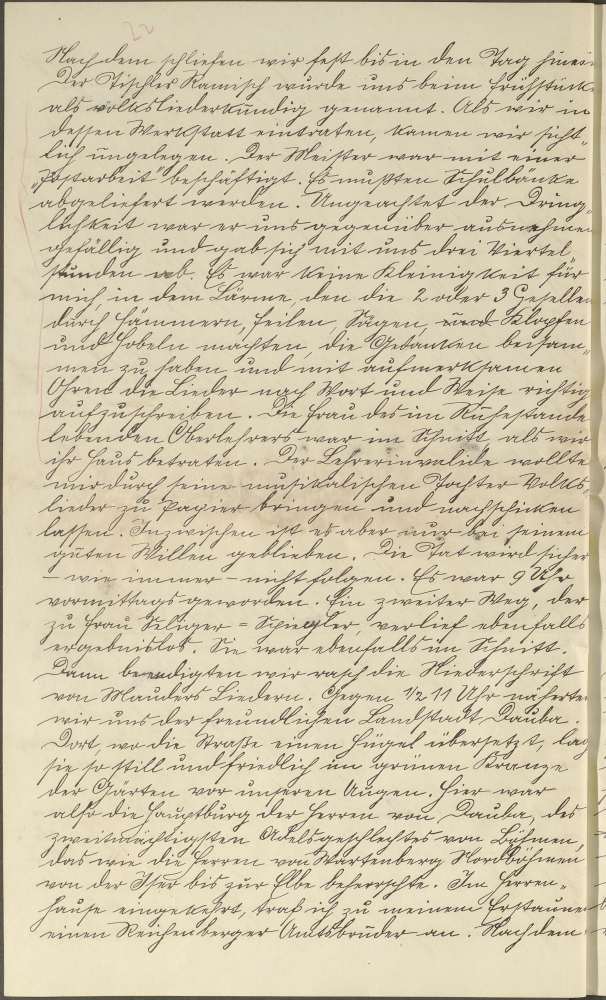 22
Nachdem schliefen wir fest bis in den Tag hinein
Der Tischler Ramisch wurde uns beim Frühstück
als volksliederkundig genannt. Als wir in
dessen Werkstatt eintraten, kamen wir sicht-
lich ungelegen. Der Meister war mit einer
„Postarbeit" beschäftigt. Es mußten Schulbänke
abgeliefert werden. Ungeachtet der Dring-
lichkeit war er uns gegenüber ausnehmend
gefällig und gab sich mit uns drei Viertel
stunden ab. Es war keine Kleinigkeit für
mich, in dem Lärme, den die 2 oder 3 Gesellen
durch Hämmern, Feilen, Sägen, und Klopfen
und Hobeln machten, die Gedanken beisam-
men zu haben und mit aufmerksamen
Ohren die Lieder nach Wort und Weise richtig
aufzuschreiben. Die Frau des im Ruhestande
lebenden Oberlehrers war im Schnitt, als wir
ihr Haus betraten. Der Lehrerinvalide wollte
mir durch seine musikalischen Tochter Volks-
lieder zu Papier bringen und nachschicken
lassen. Inzwischen ist es aber nur bei seinem
guten Willen geblieben. Die Tat wird sicher
- wie immer - nicht folgen. Es war 9 Uhr
vormittags geworden. Ein zweiter Weg, der
zu Frau Seliger = Spiegler, verlief ebenfalls
ergebnislos. Sie war ebenfalls im Schnitt.
Dann beendigten wir rasch die Niederschrift
von Mauders Liedern. Gegen 1/2 11 Uhr näherten
wir uns der freundlichen Landstadt Dauba.
Dort, wo die Straße einen Hügel übersetzt, lag
sie so still und friedlich im grünen Kranze
der Gärten vor unseren Augen. Hier war
also die Hauptburg der Herren von Dauba, des
zweitmächtigsten Adelsgeschlechtes von Böhmen,
das wie die Herren von Wartenberg Nordböhmen
von der Iser bis zur Elbe beherrschte. Im Herren-
hause eingekehrt, traf ich zu meinem Erstaunen
einen Reichenberger Amtsbruder an. Nachdem